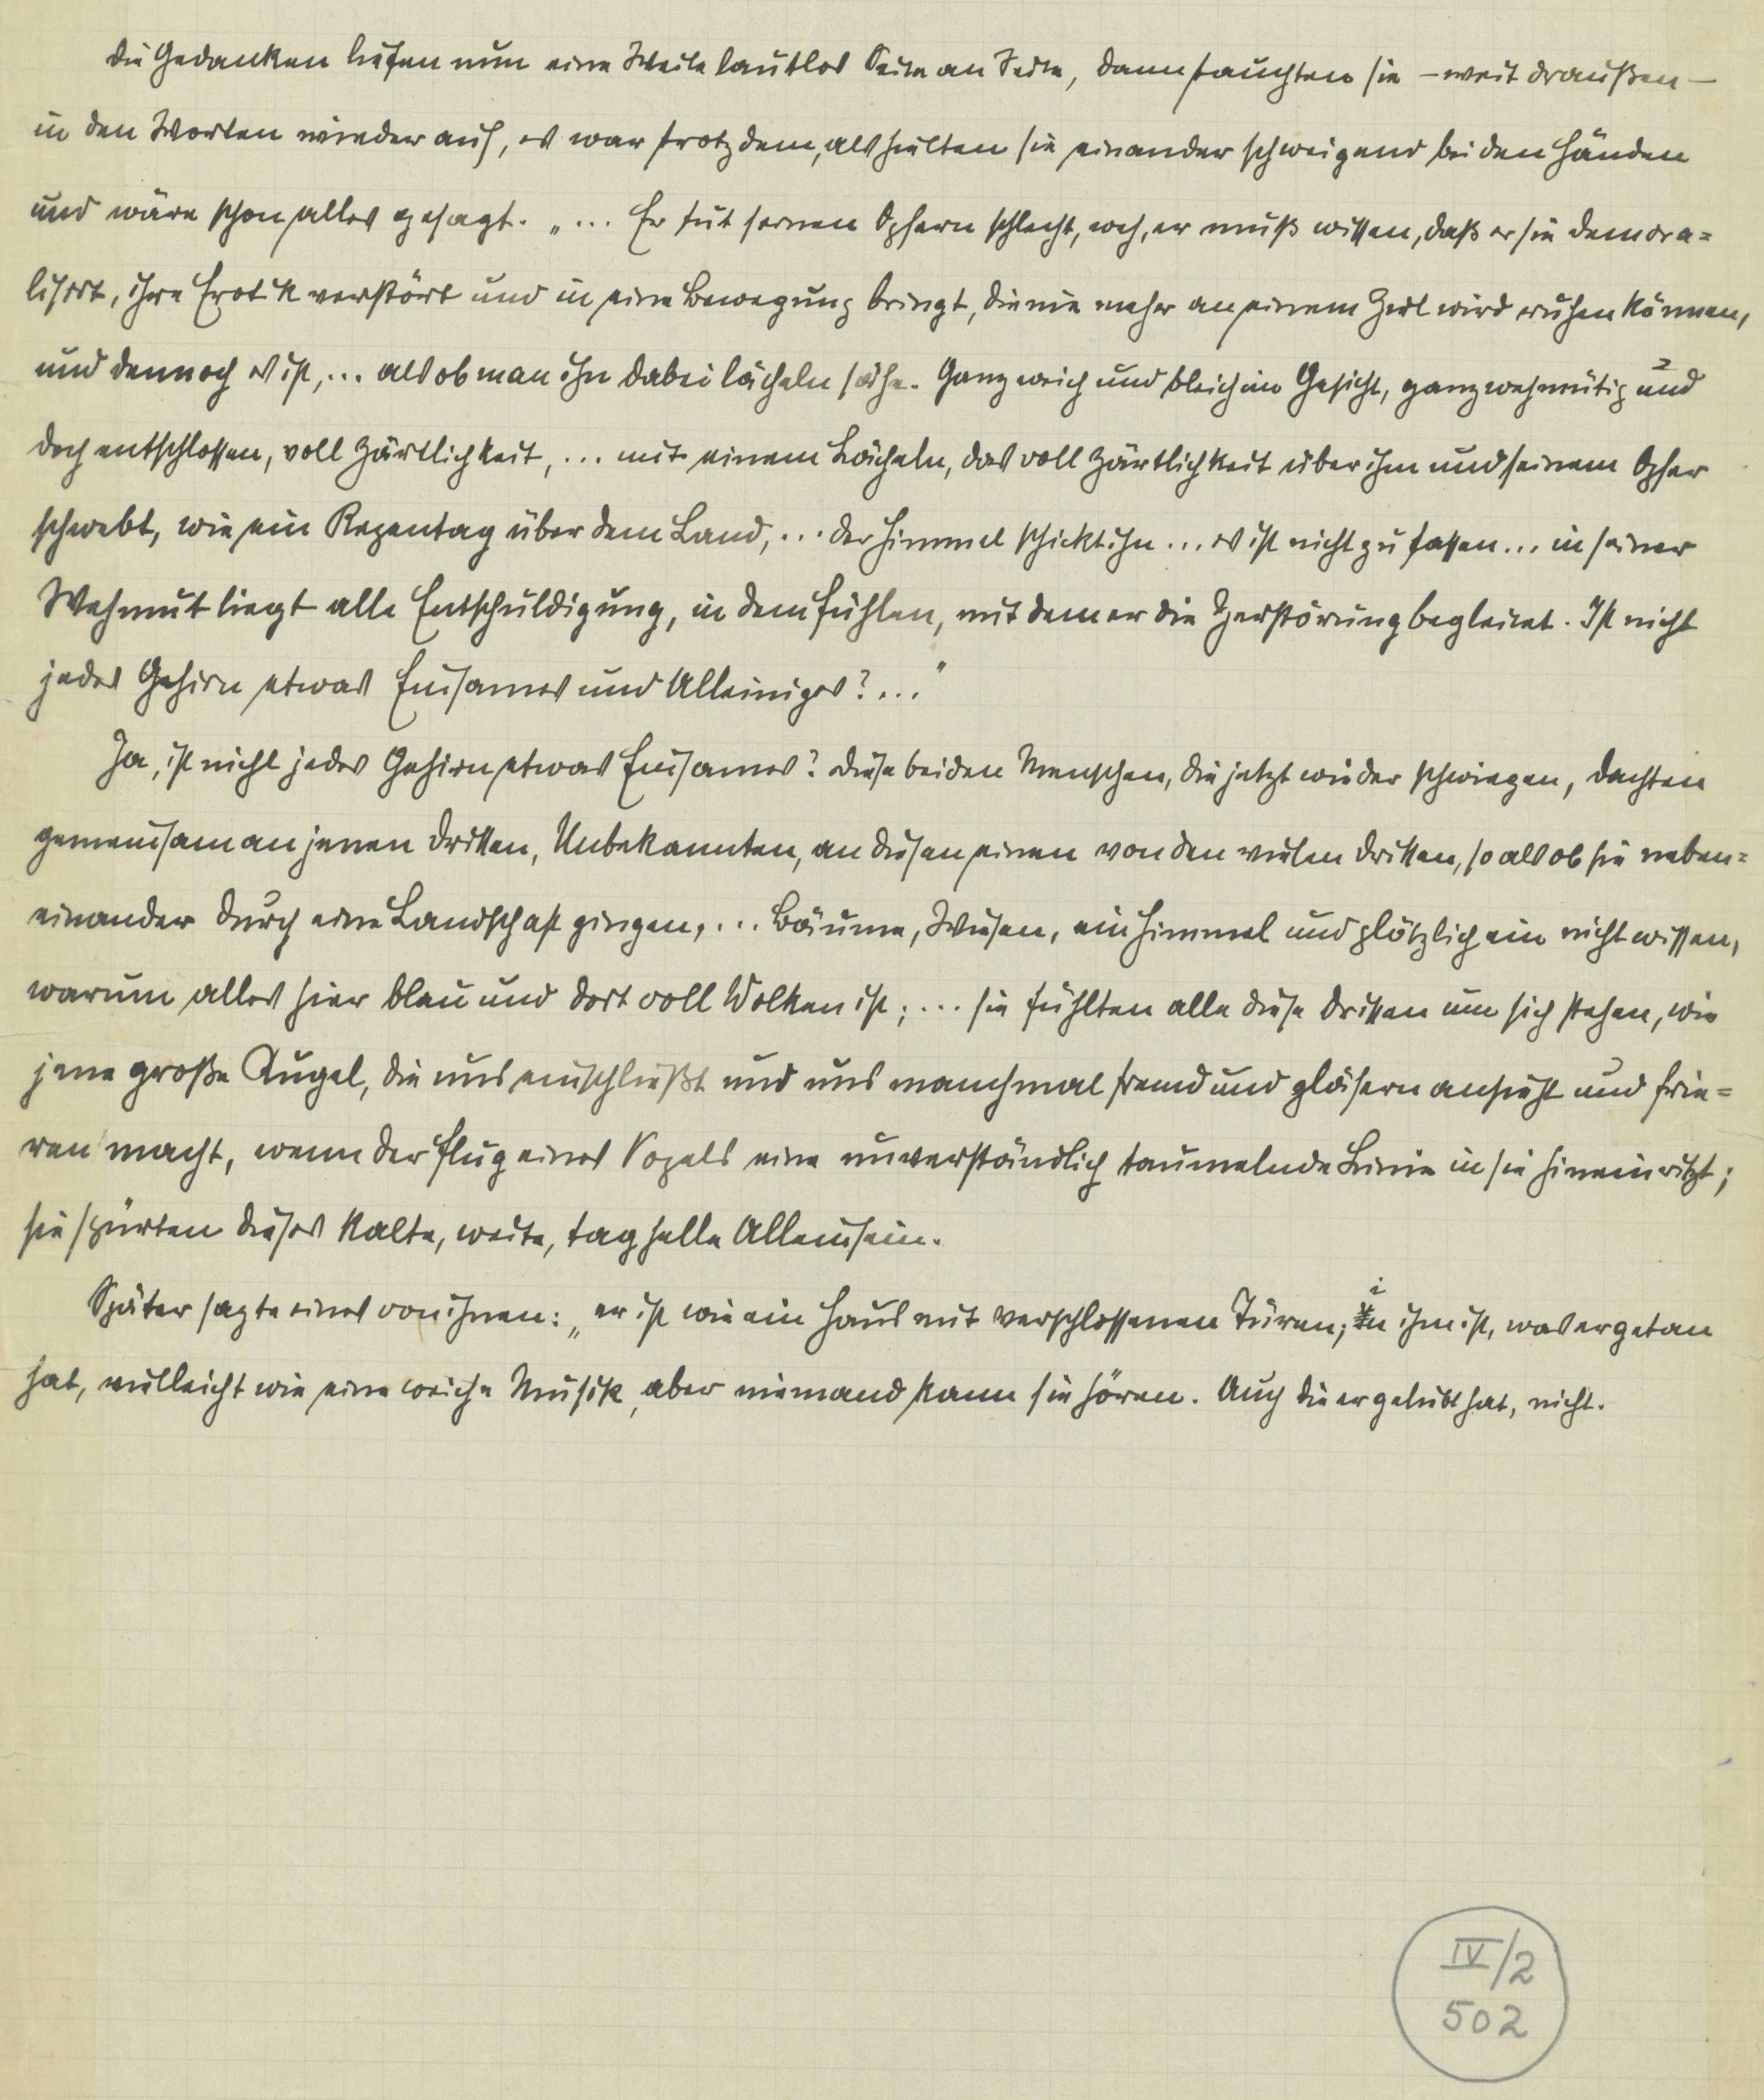 Die Gedanken liefen nun eine Weile lautlos Seite an Seite, dann tauchten sie – weit draußen –
in den Worten wieder auf, es war trotzdem, als hielten sie einander schweigend bei den Händen
und wäre schon alles gesagt. „... Er tut seinen Opfern schlecht, weh, er muß wissen, daß er sie demora=
lisiert, ihre Erotik verstört und in eine Bewegung bringt, die nie mehr an einem Ziel wird ruhen können,
und dennoch es ist, ... als ob man ihn dabei lächeln sähe. Ganz weich und bleich im Gesicht, ganz wehmütig und
doch entschlossen, voll Zärtlichkeit, ... mit einem Lächeln, das voll Zärtlichkeit über ihm und seinem Opfer
schwebt, wie ein Regentag über dem Land, ... der Himmel schickt ihn ... es ist nicht zu fassen ... in seiner
Wehmut liegt alle Entschuldigung, in dem Fühlen, mit dem er die Zerstörung begleitet. Ist nicht
jedes Gehirn etwas Einsames und Alleiniges? ..."
Ja, ist nicht jedes Gehirn etwas Einsames? Diese beiden Menschen, die jetzt wieder schwiegen, dachten
gemeinsam an jenen Dritten, Unbekannten, an diesen einen von den vielen Dritten, so als ob sie neben=
einander durch eine Landschaft gingen, ... Bäume, Wiesen, ein Himmel und plötzlich ein nicht wissen,
warum alles hier blau und dort voll Wolken ist; ... sie fühlten alle diese Dritten um sich stehen, wie
jene große Kugel, die uns einschließt und uns manchmal fremd und gläsern ansieht und frie=
ren macht, wenn der Flug eines Vogels eine unverständlich taumelnde Linie in sie hineinritzt;
sie spürten dieses kalte, weite, taghelle Alleinsein.
Später sagte eines von ihnen: „er ist wie ein Haus mit verschlossenen Türen; in ihm ist, was er getan
hat, vielleicht wie eine weiche Musik, aber niemand kann sie hören. Auch die er geliebt hat, nicht.
IV/2
502